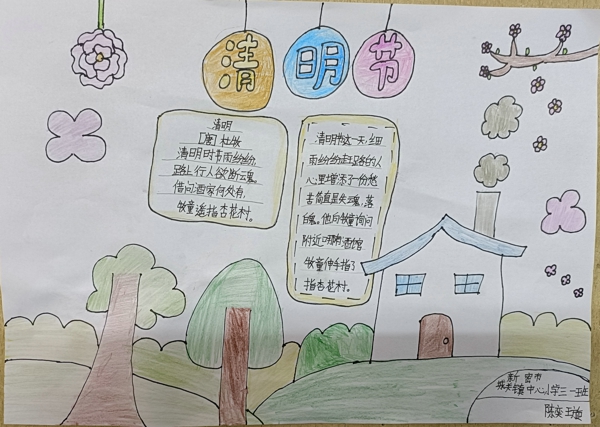 清明节
清明
[唐] 杜牧
清明时节雨纷纷,
路上行人欲断魂。
借问酒家何处有,
牧童遥指杏花村。
清明这一天,细
雨纷纷赶路的人
心里增添了一份愁
苦简直是失魂,落
魄。他向牧童询问
附近哪有酒馆
牧童伸手指了
指杏花村。
新密市
镇中心小学三一班